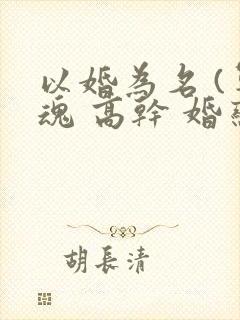 以婚為名(
魂 高幹 婚
胡長清